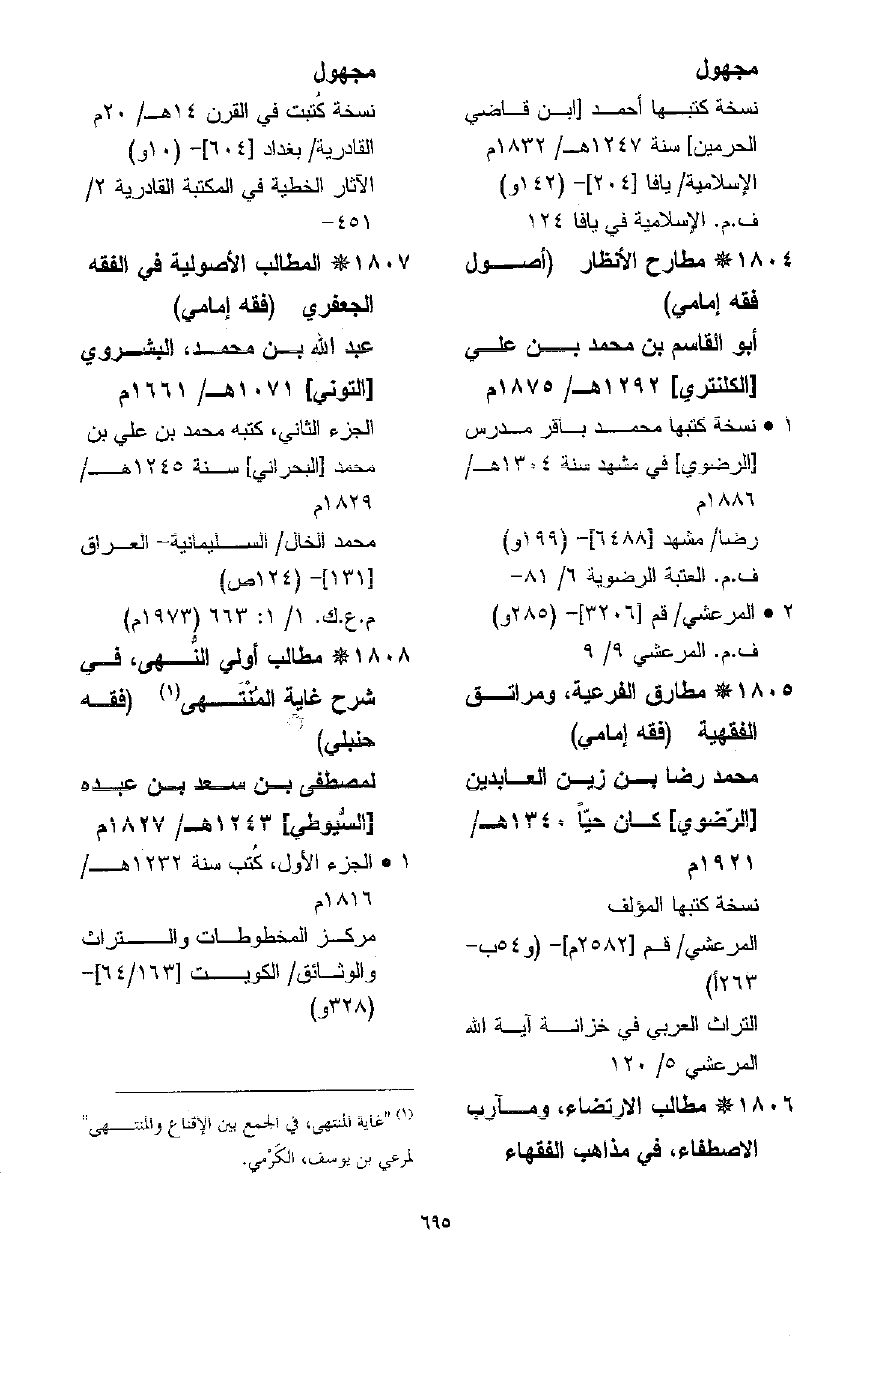 مجهول
نسخة كتبها أحمد [ابن قاضي
الحرمين] سنة ١٢٤٧هـ/ ١٨٣٢م
الإسلامية/ يافا [٢٠٤]- (١٤٢و)
ف.م. الإسلامية في يافا ١٢٤
١٨٠٤* مطارح الأنظار (أصول
فقه إمامي)
أبو القاسم بن محمد بن علي
[الكلنتري] ١٢٩٢هـ/ ١٨٧٥م
١ • نسخة كتبها محمد باقر مدرس
[الرضوي] في مشهد سنة ١٣٠٤هـ/
١٨٨٦م
رضا/ مشهد [٦٤٨٨]- (١٩٩و)
ف.م. العتبة الرضوية ٦/ ٨١-
٢ • المرعشي/ قم [٣٢٠٦]- (٢٨٥و)
ف.م. المرعشي ٩/ ٩
١٨٠٥* مطارق الفرعية، ومراتق
الفقهية (فقه إمامي)
محمد رضا بن زين العابدين
[الرّضوي] كان حيّاً ١٣٤٠هـ/
١٩٢١م
نسخة كتبها المؤلف
المرعشي/ قم [٢٥٨٢م]- (و٥٤ب-
٢٦٣أ)
التراث العربي في خزانة آية الله
المرعشي ٥/ ١٢٠
١٨٠٦* مطالب الارتضاء، ومآرب
الاصطفاء، في مذاهب الفقهاء
مجهول
نسخة كُتبت في القرن ١٤هـ/ ٢٠م
القادرية/ بغداد [٦٠٤]- (١٠و)
الآثار الخطية في المكتبة القادرية ٢/
٤٥١-
١٨٠٧* المطالب الأصولية في الفقه
الجعفري (فقه إمامي)
عبد الله بن محمد، البشروي
[التوني] ١٠٧١هـ/ ١٦٦١م
الجزء الثاني، كتبه محمد بن علي بن
محمد [البحراني] سنة ١٢٤٥هـ/
١٨٢٩م
محمد الخال/ السليمانية- العراق
[١٣١]- (١٢٤ص)
م.ع.ك. ١/ ١: ٦٦٣ (١٩٧٣م)
١٨٠٨* مطالب أولي النُّهى، في
شرح غاية المنْتَهى(١) (فقه
حنبلي)
لمصطفى بن سعد بن عبده
[السُّيوطي] ١٢٤٣هـ/ ١٨٢٧م
١ • الجزء الأول، كُتب سنة ١٢٣٢هـ/
١٨١٦م
مركز المخطوطات والتراث
والوثائق/ الكويت [٦٤/١٦٣]-
(٣٢٨و)
(١) "غاية المنتهى، في الجمع بين الإقناع والمنتهى"
لمرعي بن يوسف، الكَرْمي.
٦٩٥